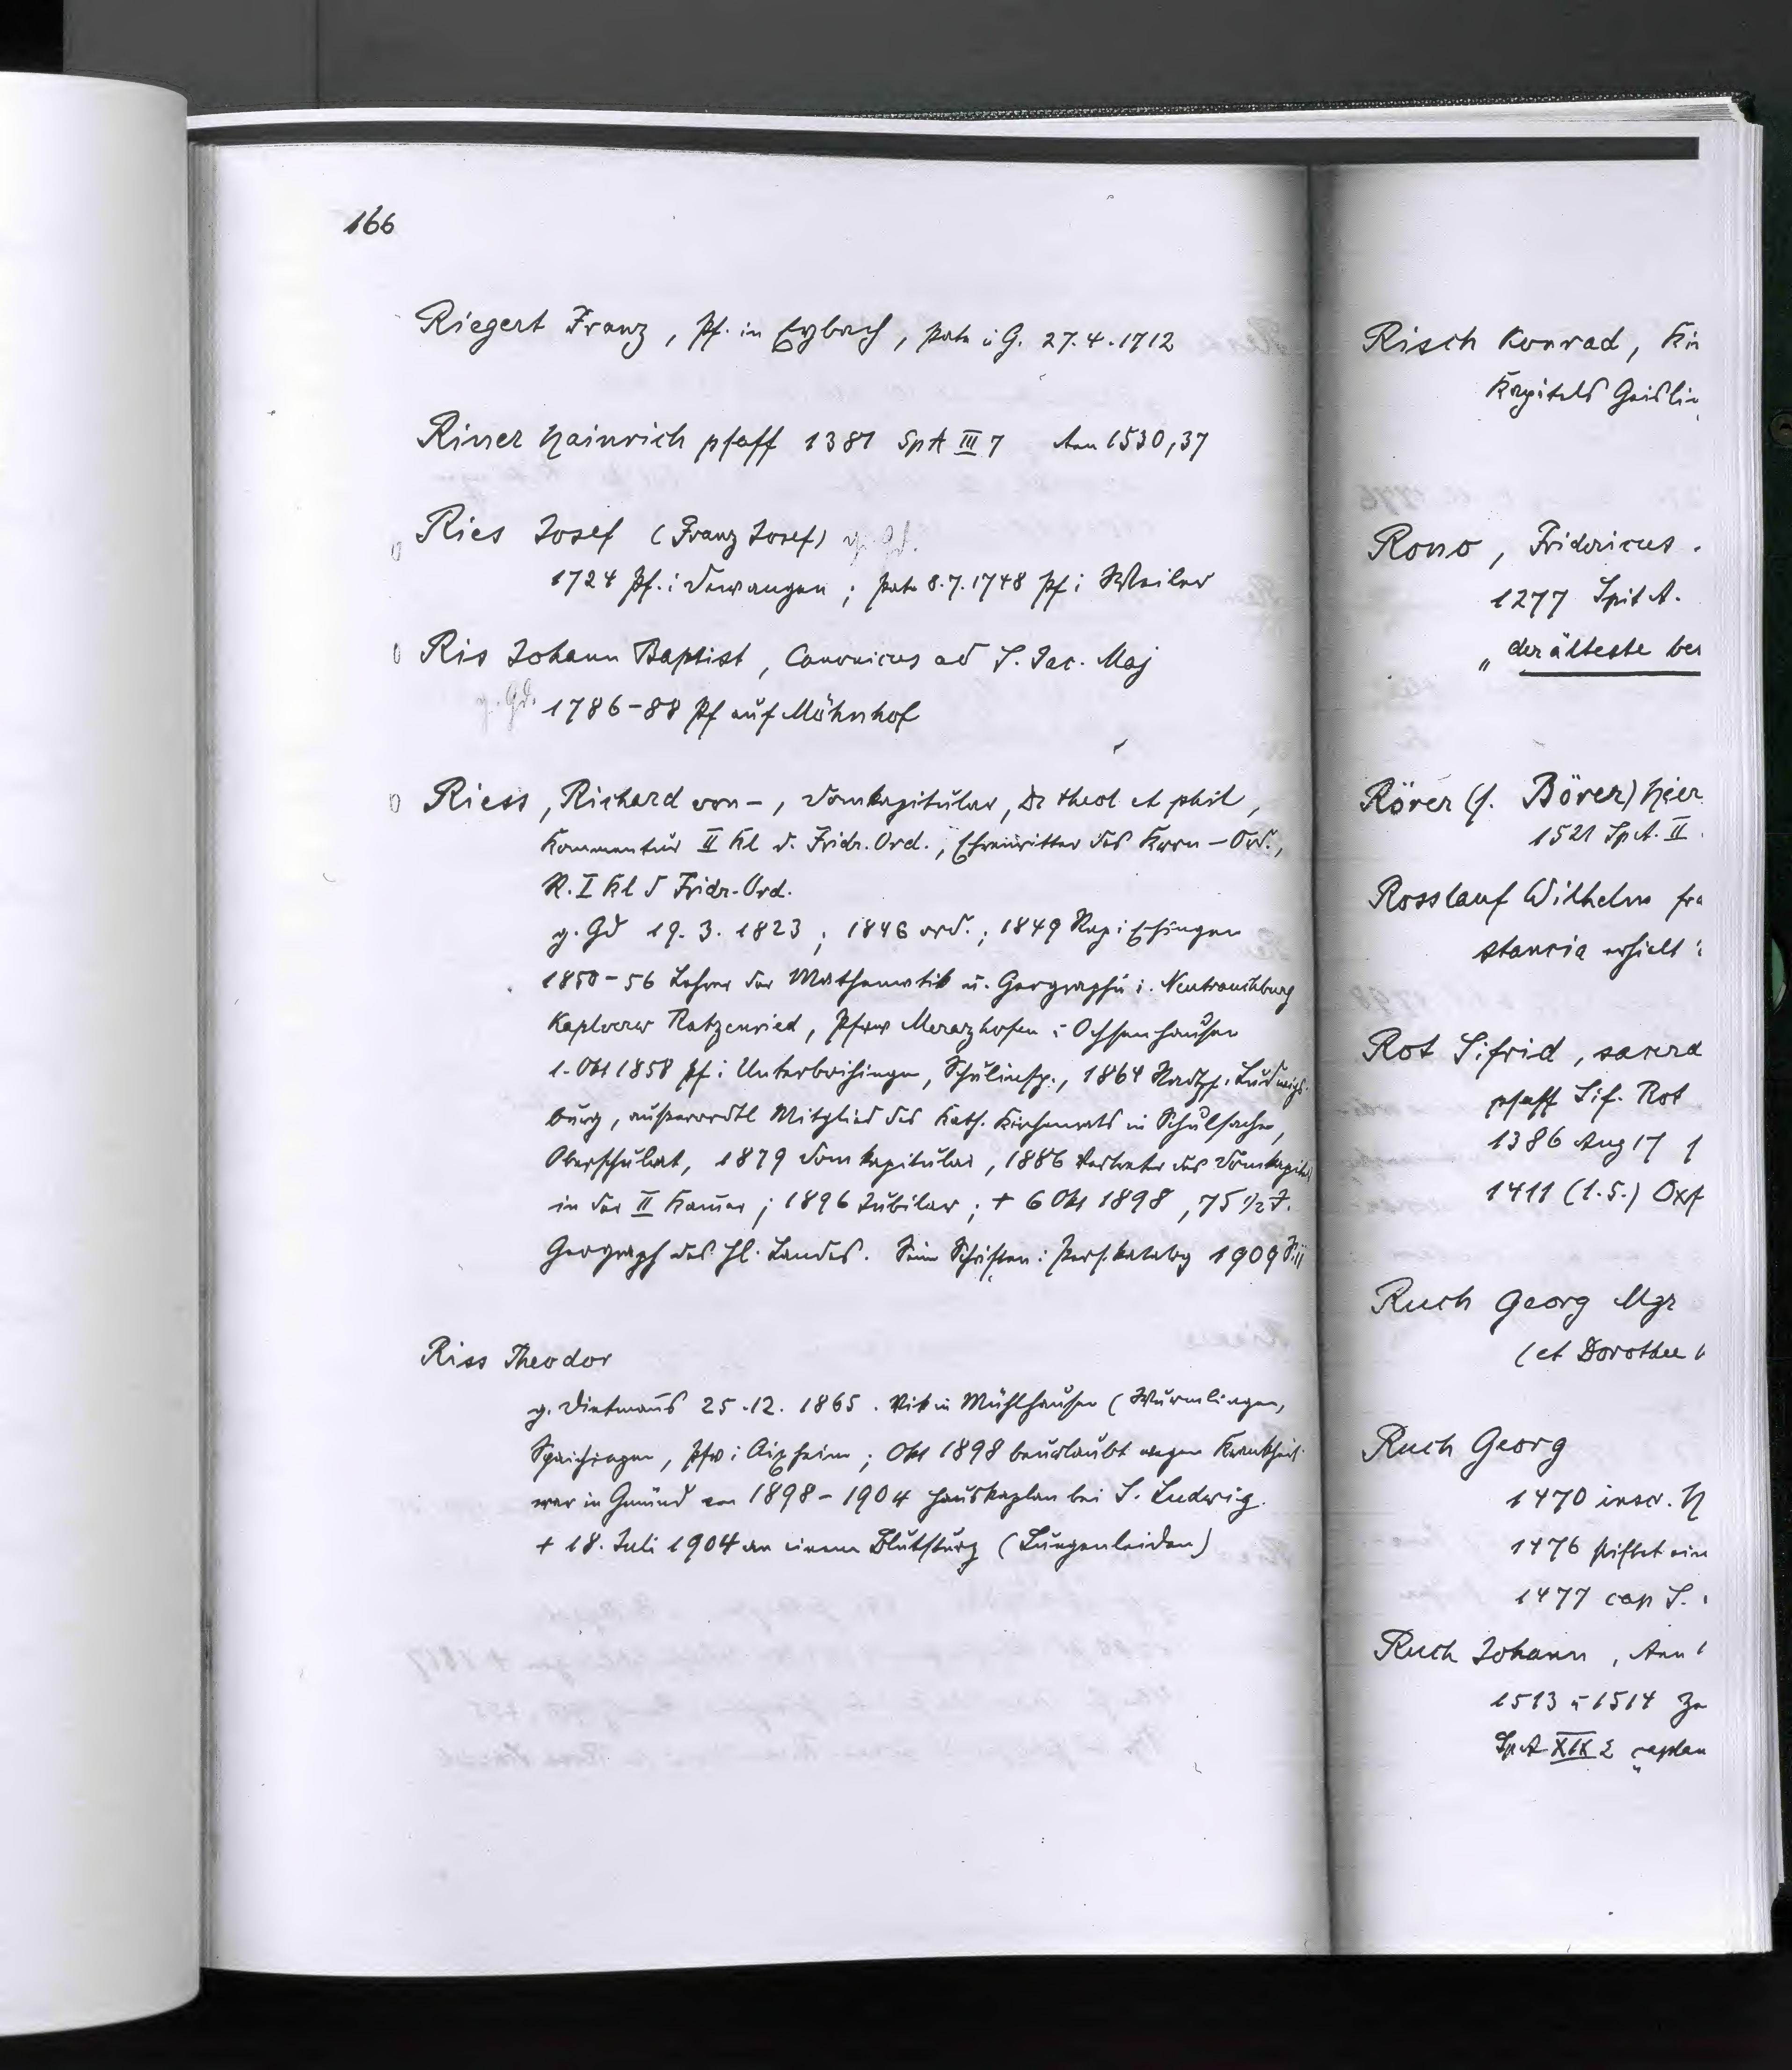 166
Riegert Franz, Pf. in Eybach, Pate i G. 27.4.1712
Rinser Hainrich pfaff 1381 SpA III 7 Ann 1530,37
0 Ries Josef (Franz Josef) g. Gd.
1724 Pf. i Dewangen; Pate 8.7.1748 Pf i Weiler
0 Ris Johann Baptist, Canonicus ad S. Jac. Maj
g. Gd. 1786-88 Pf auf Möhnhof
0 Riess, Richard von -, Domkapitular, Dr theol et phil,
Kommentur II Kl d. Fridr. Ord., Ehrenritter des Kron-Ord.,
R. I Kl d Fridr-Ord.
g. Gd 19. 3. 1823; 1846 ord.; 1849 Kap i Ehingen
1850-56 Lehrer der Mathematik u. Geographie i. Neutrauchburg
Kaplverw Ratzenried, Pfverw Merazhofen i Ochsenhausen
1. Okt 1858 Pf i Unterboihingen, Schulinsp., 1864 Stadtpf. Ludwigs-
burg, außerordtl Mitglied des Kath. Kirchenrats in Schulsachen,
Oberschulrat, 1879 Domkapitular, 1886 Vertreter des Domkapitels
in der II Kammer; 1896 Jubilar; + 6 Okt 1898, 75 1/2 J.
Geograph des Hl. Landes. Seine Schriften: Pers. katalog 1909 S. 11
Riss Theodor
g. Dietmanns 25.12. 1865. Vik in Mühlhausen (Wurmlingen,
Spaichingen, Pfv i Aixheim; Okt 1898 beurlaubt wegen Krankheit
war in Gmünd von 1898-1904 Hauskaplan bei S. Ludwig.
+ 18. Juli 1904 an einem Blutsturz (Lungenleiden)
Risch Konrad, Kir
Kapitels Geislin
Rono, Fridericus.
1277 Spit A.
"der älteste ber
Rörer (s. Börer) Hier
1521 Sp A. II
Rosslauf Wilhelm fra
stancia erhielt
Rot Sifrid, sacerd
pfaff Sif. Rot
1386 Aug 17
1411 (1.5.) Oxf
Ruch Georg Mgr
(et Dorothee
Ruch Georg
1470 inscr. H
1476 stiftet ein
1477 cap S.
Ruch Johann, Ann
1513 u 1514 Ze
SpA XIX 2 "caplan